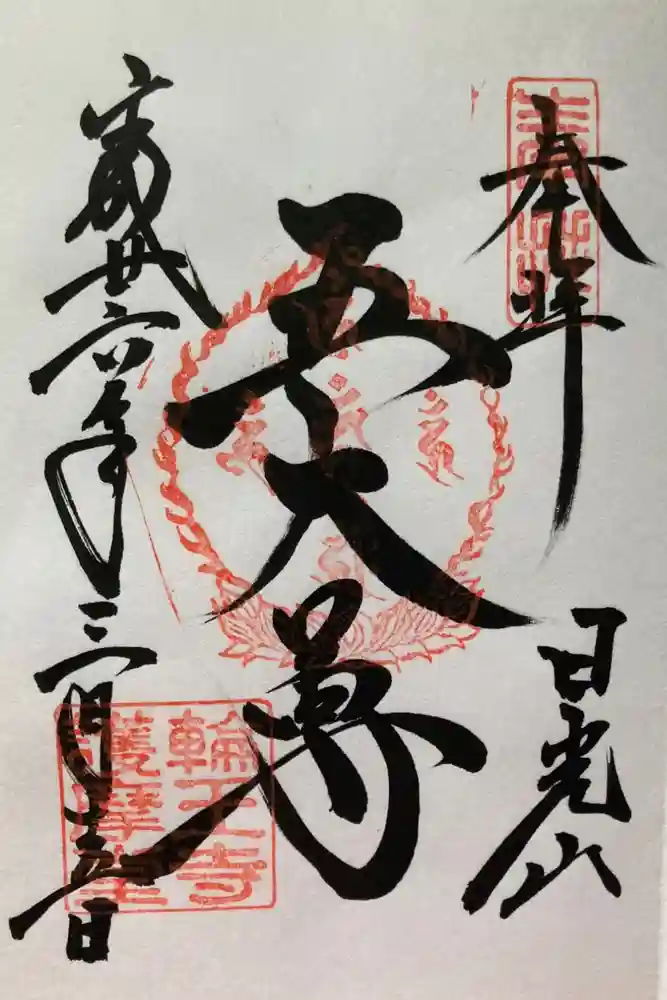 奉拝
日光山
五大尊
平成廿六年三月五日
輪王寺
護摩堂